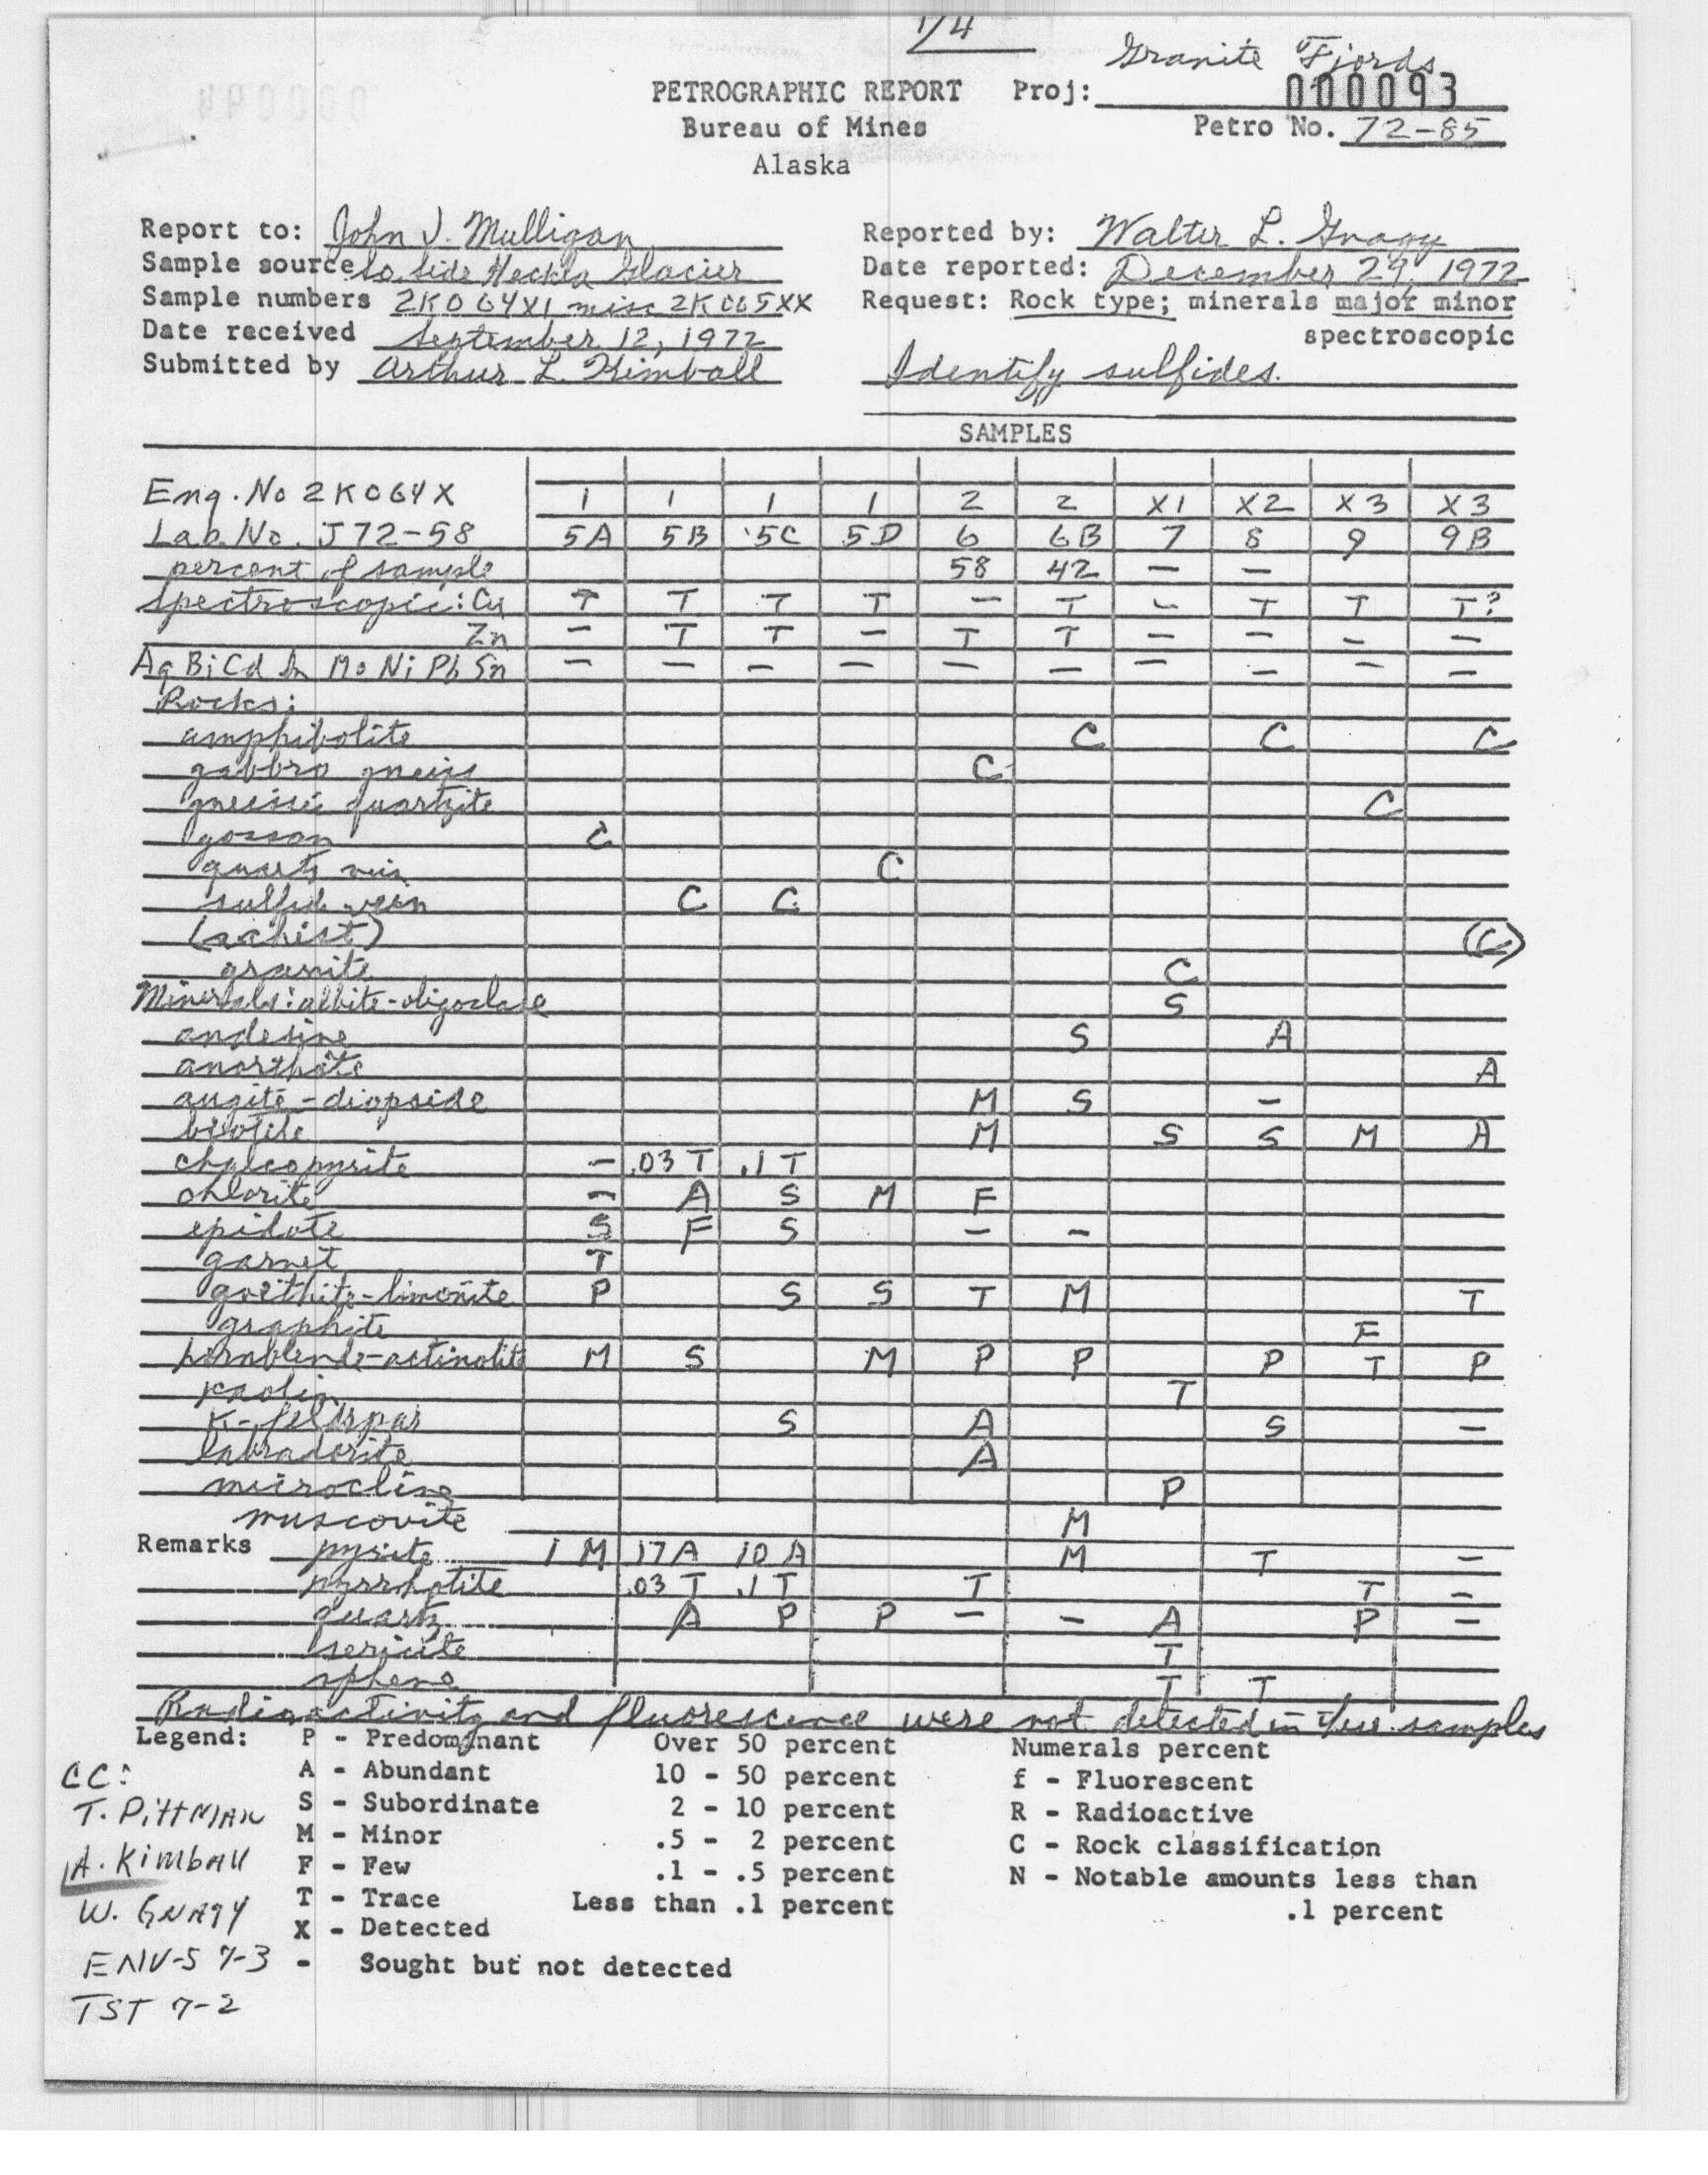 1/4
Granite Fjords
PETROGRAPHIC REPORT Proj: 000093
Bureau of Mines Petro No. 72-85
Alaska
Report to: John J. Mulligan Reported by: Walter L. Gnagy
Sample source So. Side Heckla Glacier Date reported: December 29, 1972
Sample numbers 2K064X1 misc 2K065XX Request: Rock type; minerals major minor
Date received September 12, 1972 spectroscopic
Submitted by Arthur L. Kimball Identify sulfides.
SAMPLES
Eng. No 2K064X 1 1 1 1 2 2 X1 X2 X3 X3
Lab. No. J72-58 5A 5B 5C 5D 6 6B 7 8 9 9B
percent of sample 58 42 — —
spectroscopic: Cu T T T T — T — T T T?
Zn — T T — T T — — — —
Ag Bi Cd In Mo Ni Pb Sn — — — — — — — — — —
Rocks:
amphibolite C C C
gabbro gneiss C
gneissic quartzite C
gossan C
quartz vein C
sulfide vein C C
(schist) (C)
granite C
Minerals: albite-oligoclase S
andesine S A
anorthite A
augite-diopside M S —
biotite M S S M A
chalcopyrite — .03 T .1 T
chlorite — A S M F
epidote S F S — —
garnet T
goethite-limonite P S S T M T
graphite F
hornblende-actinolite M S M P P P T P
kaolin T
K-feldspar S A S —
labradorite A
microcline P
muscovite M
Remarks pyrite 1 M 17 A 10 A M T —
pyrrhotite .03 T .1 T T T —
quartz A P P — — A P —
sericite T
sphene T T
Radioactivity and fluorescence were not detected in these samples
Legend: P - Predominant Over 50 percent Numerals percent
CC: A - Abundant 10 - 50 percent f - Fluorescent
T. Pittman S - Subordinate 2 - 10 percent R - Radioactive
M - Minor .5 - 2 percent C - Rock classification
A. Kimball F - Few .1 - .5 percent N - Notable amounts less than
W. Gnagy T - Trace Less than .1 percent .1 percent
X - Detected
ENV-S 7-3 - Sought but not detected
TST 7-2